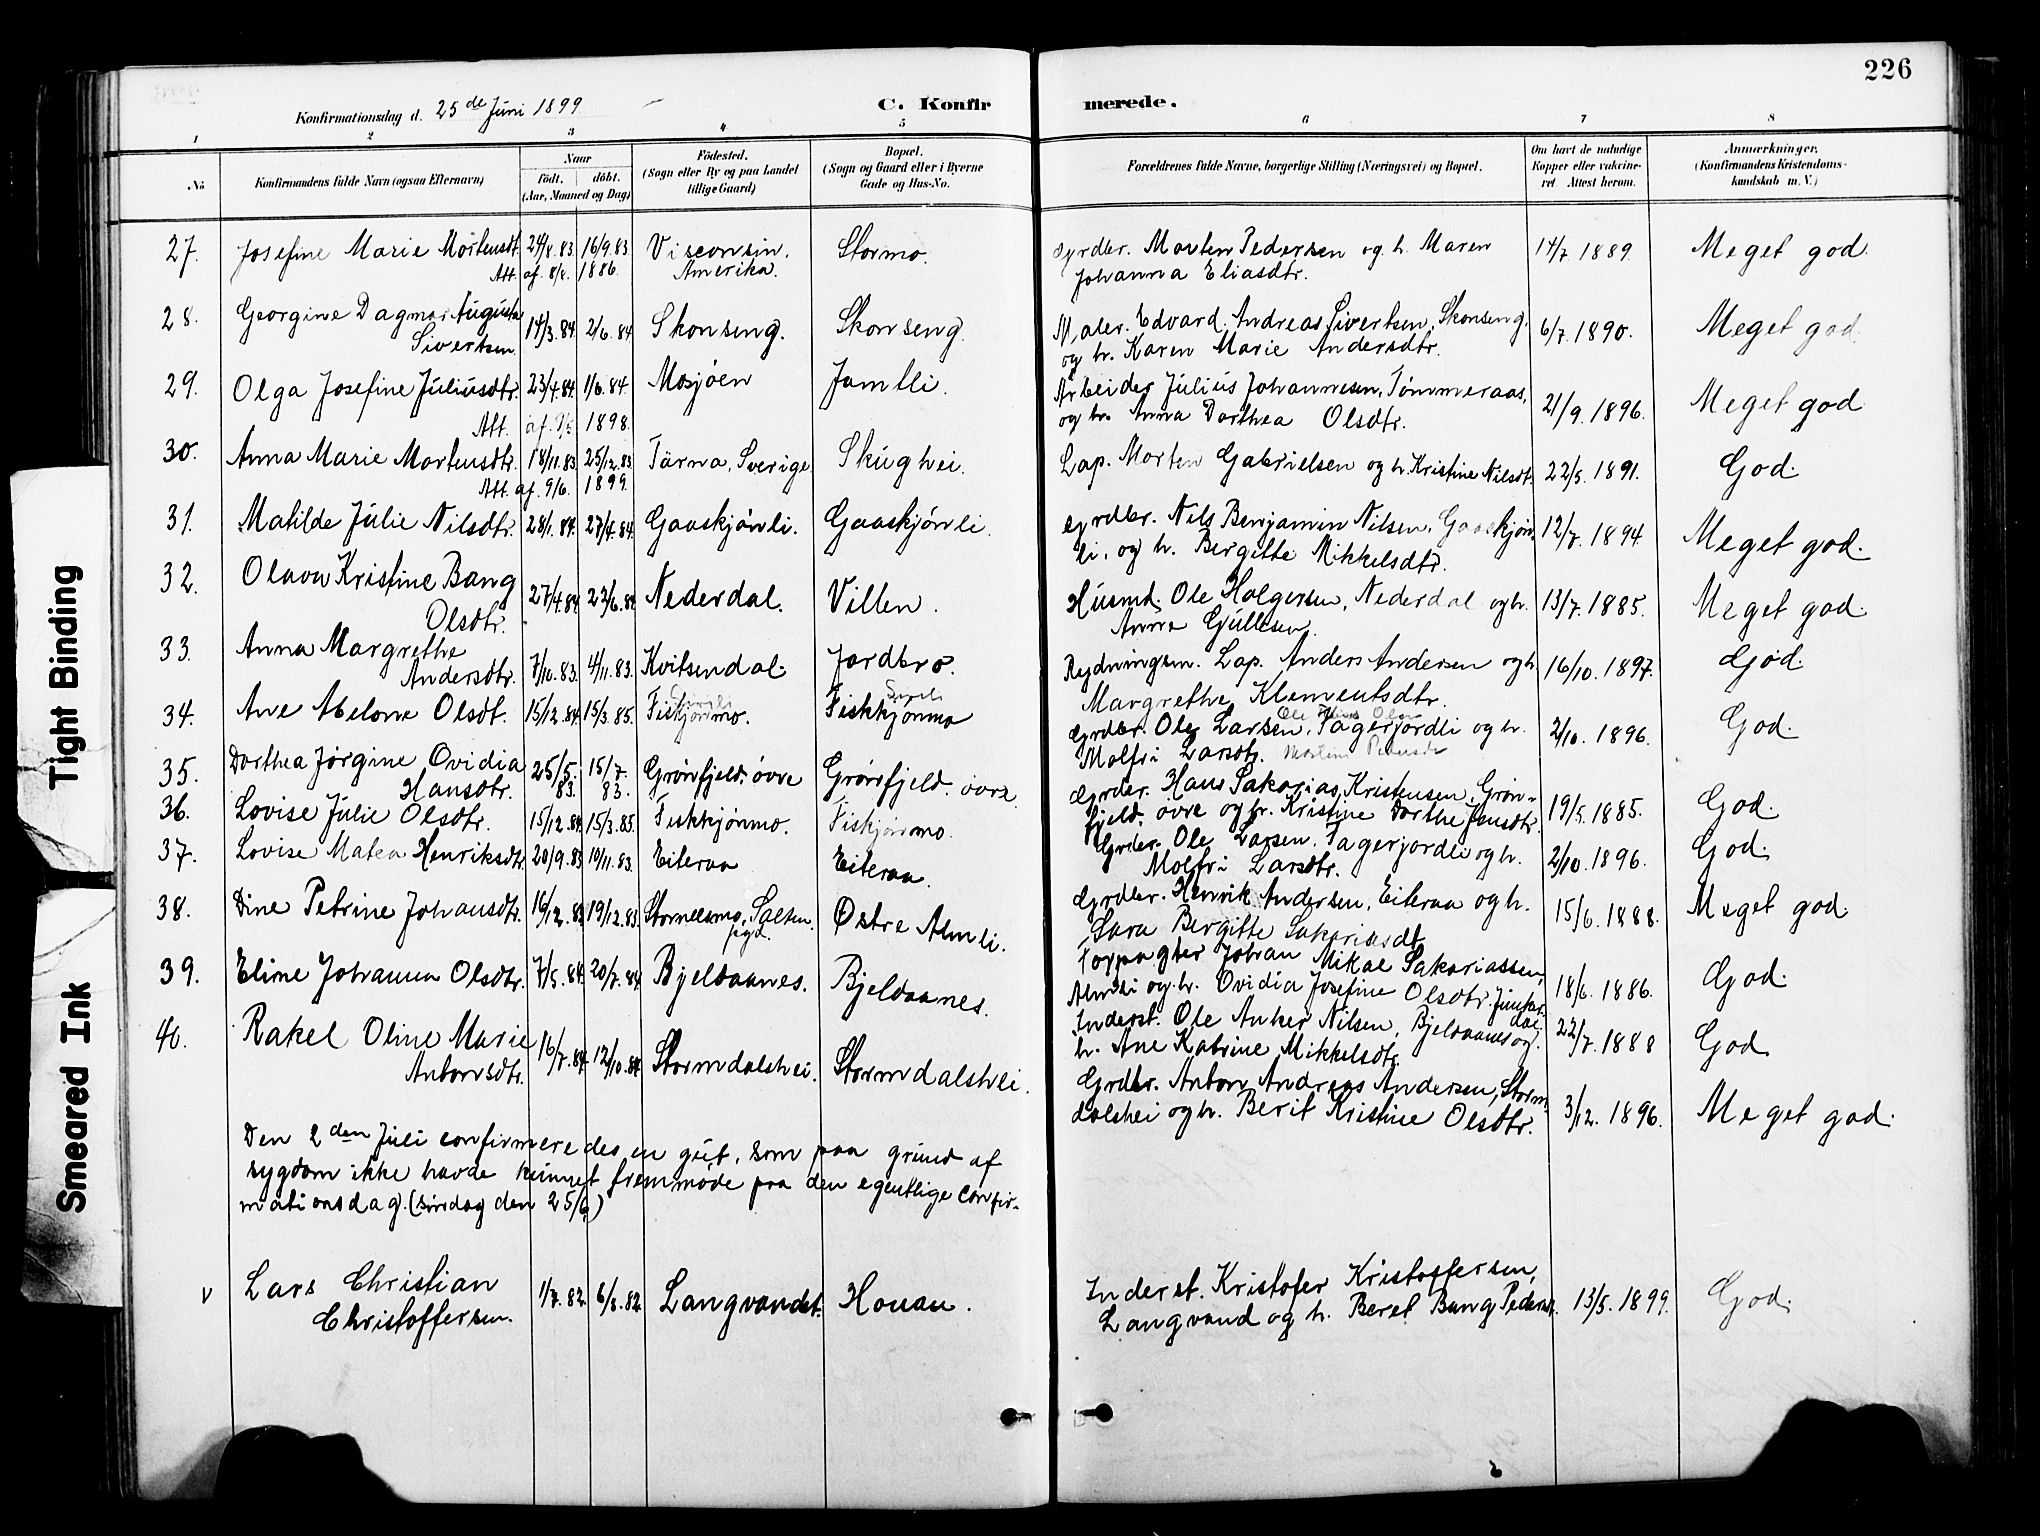 226
Konfirmationsdag d. 25de Juni 1899
C. Konfirmerede.
1 2 3 4 5 6 7 8
No
Konfirmandens fulde Navn (ogsaa Efternavn)
Naar
födt. döbt.
(Aar, Maaned og Dag)
Födested.
(Sogn eller By og paa Landet
tillige Gaard)
Bopæl.
(Sogn og Gaard eller i Byerne
Gade og Hus-No.
Forældrenes fulde Navne, borgerlige Stilling (Næringsvei) og Bopæl.
Om havt de naturlige
Kopper eller vakcine-
ret Attest herom.
Anmærkninger.
(Konfirmandens Kristendoms-
kundskab m. V.)
27. Josefine Marie Mortensdt. 24/8.83. 16/9.83 Visconsin. Stormo. Grdbr. Morten Pedersen og h. Maren 14/7 1889. Meget god.
Att. af. 8/8. 1886. Amerika. Johanna Eliasdtr.
28. Georgine Dagmar Augusta
Sivertsen. 14/3.84. 2/6.84 Skonseng. Skonseng. Maler. Edvard. Andreas Sivertsen, Skonseng, 6/7. 1890. Meget god.
og h. Karen Marie Andersdtr.
29. Olga Josefine Juliusdtr. 23/4.84. 1/6.84. Mosjøen Jamtli. Arbeider Julius Johannesen, Tømmeraas, 21/9. 1896. Meget god
Att. af. 1898. og h. Anna Dorthea Olsdtr.
30. Anna Marie Mortensdtr. 18/11.83. 25/12.83. Tärna, Sverige Skughei. Lap. Morten Gabrielsen og h. Kristine Nilsdt. 22/5. 1891. God.
Att. af. 9/6. 1899.
31. Matilde Julie Nilsdtr. 28/1.84. 27/4.84. Gaaskjønli. Gaaskjønli. Grdbr. Nils Benjamin Nilsen, Gaaskjøn- 12/7. 1894 Meget god.
li, og h. Bergitte Mikkelsdtr.
32. Olava Kristine Bang
Olsdtr. 27/4.84. 23/6.84 Nederdal. Villen. Husmd. Ole Holgersen, Nederdal og h. 13/7. 1885. Meget god.
Anne Gullesen.
33. Anna Margrethe
Andersdtr. 7/10.83. 4/11.83. Kvitsendal. Jordbro. Rydningsm. Lap. Anders Andersen og h. 16/10. 1897. God.
Margrethe Klementsdtr.
34. Ane Abelone Olsdt. 15/12.84. 15/3.85. Fiskjønmo. Fiskkjønmo Grdbr. Ole Larsen, Fagerjordli og h. 2/10. 1896. God.
Molfri Larsdtr.
35. Dorthea Jørgine Ovidia
Hansdtr. 25/5.83. 15/7.83. Grønfjeld. øvre Grønfjeld. øvre Grdbr. Hans Sakarias Kristensen, Grøn- 19/5. 1885. God.
fjeld. øvre og h. Kristine Dorthe Jensdtr.
36. Lovise Julie Olsdtr. 15/12.84. 15/3.85. Fiskkjønmo. Fiskjønmo. Grdbr. Ole Larsen. Fagerjordli og h. 2/10. 1896. God.
Molfri Larsdtr.
37. Lovise Matea Henriksdtr. 20/9.83 10/11.83. Eiteraa Eiteraa. Grdbr. Henrik Andersen, Eiteraa og h. 15/6. 1888. Meget god.
Sara Bergitte Sakariasdt.
38. Dine Petrine Johansdtr. 16/12.83 19/12.83. Stormeesmo, Salten. Østre Almli. Forpagter Johan Mikal Sakariassen, 18/6. 1886. God.
pgd. Almli og h. Ovidia Josefine Olsdtr.
39. Eline Johanna Olsdtr. 7/5.84. 20/7.84. Bjeldaanes. Bjeldaanes. Inderst. Ole Anker Nilsen, Bjeldaanes og 22/7. 1888 God.
h. Ane Katrine Mikkelsdtr.
40. Rakel Oline Marie
Antonsdtr. 16/7.84. 12/10.84 Stormdalshei. Stormdalshei. Grdbr. Anton Andreas Andersen, Storm- 3/12. 1896. Meget god.
dalshei og h. Berit Kristine Olsdtr.
Den 2den Juli confirmeredes en gut, som paa grund af
sygdom ikke havde kunnet fremmøde paa den egentlige confir-
mationsdag. (søndag den 25/6.)
v Lars Christian
Christoffersen. 1/7.82. 6/8.82. Langvandet. Houau. Inderst. Kristofer Kristoffersen, 13/5. 1899. God.
Langvand og h. Beret Bang Pedersdt.
Tight Binding
Smeared Ink